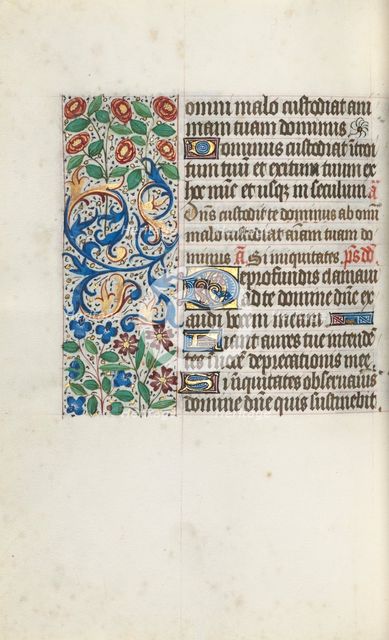 omni malo custodiat ani
mam tuam dominus
Dominus custodiat introi
tum tuū et exitum tuum ex
hoc nūc et usq̃ in seculum. a̅
Dn̄s custodit te dominus ab om̄i
malo custodiat animam tuam do
minus a̅ Si iniquitates ps̄ dd̄
De profundis clamavi
ad te domine dn̄e ex
audi vocem meam
Fiant aures tue intende
tes in vocē deprecationis mee.
Si iniquitates observaueris
domine dn̄e quis sustinebit